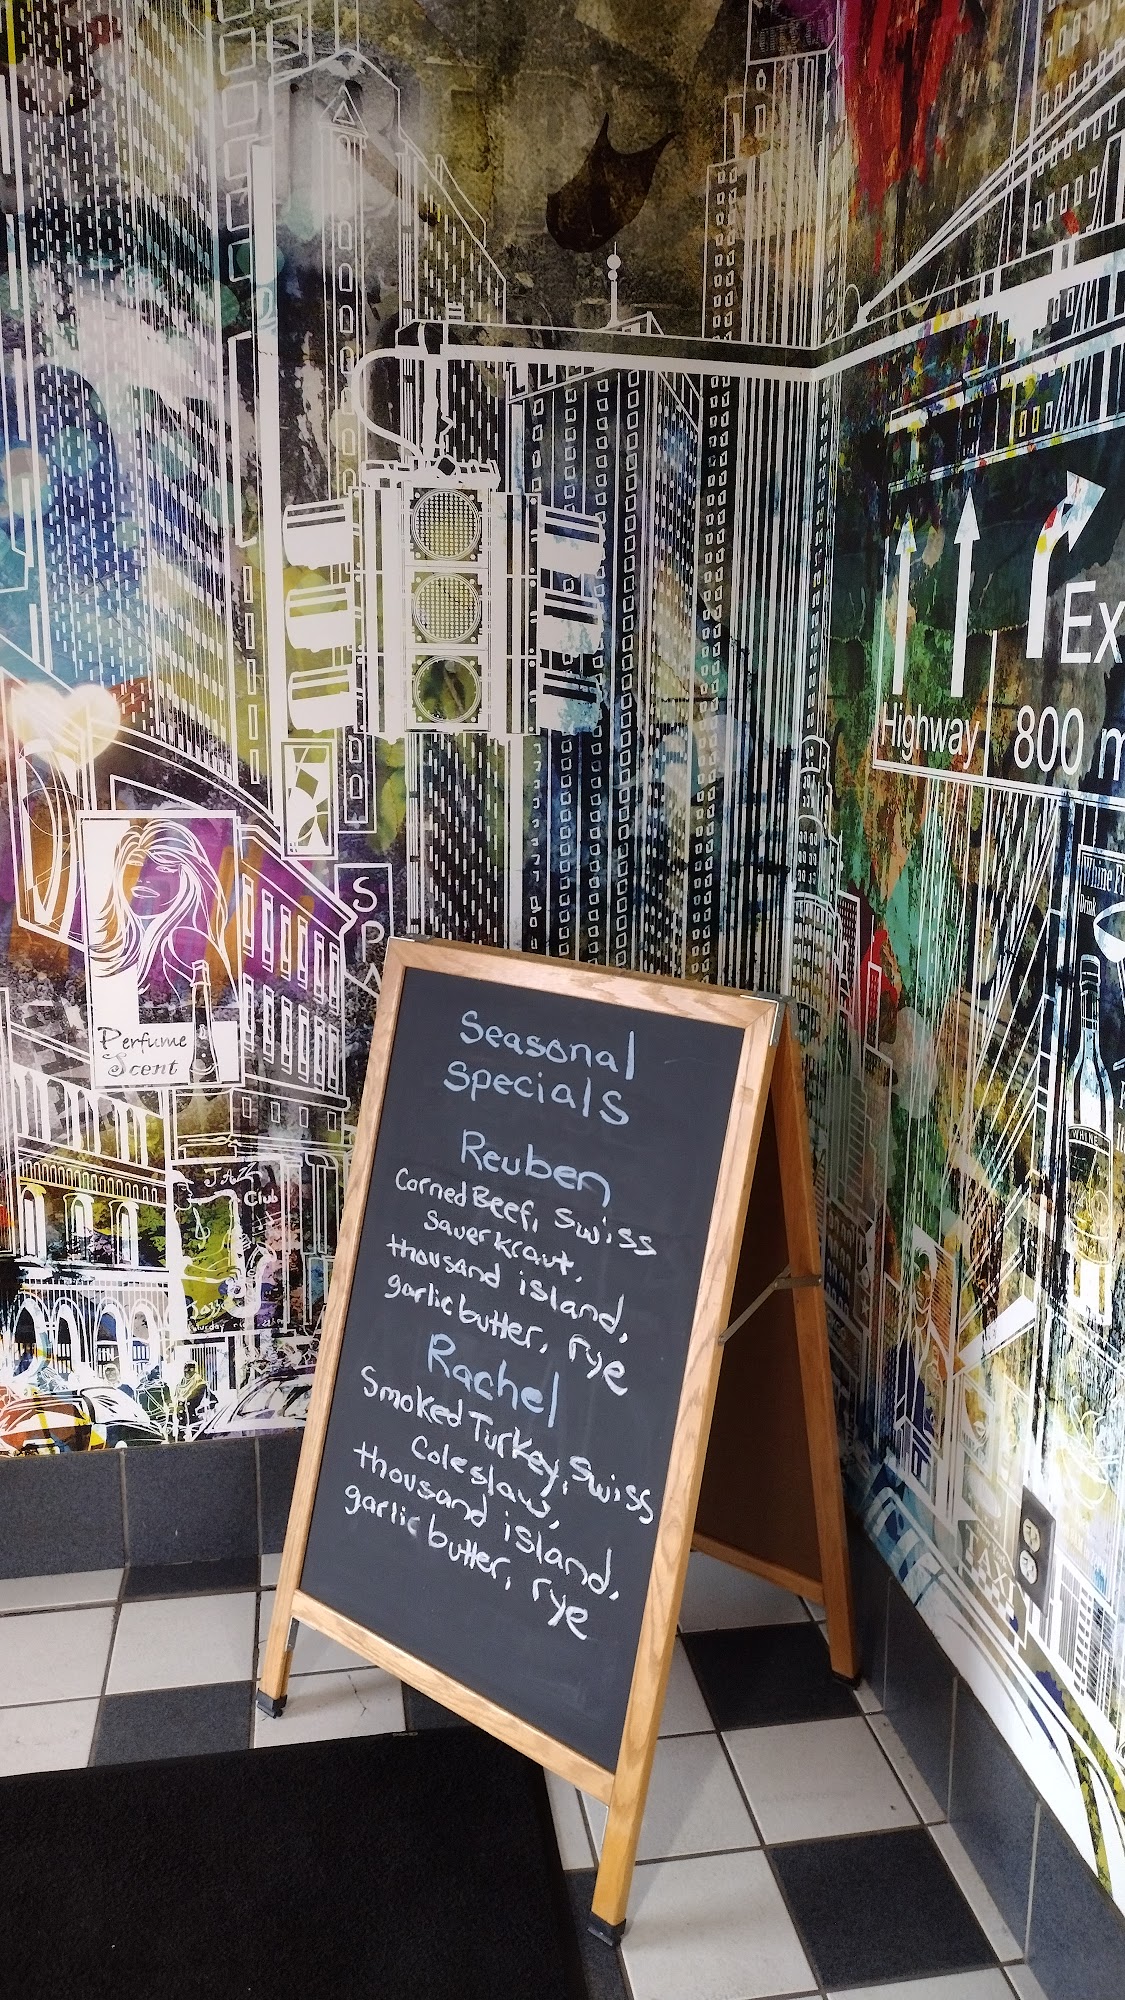 Highway
800 m
Ex
SPA
Perfume
Scent
JAZ
Club
Seasonal
Specials
Reuben
Corned Beef, Swiss
Sauerkraut,
thousand island,
garlic butter, rye
Rachel
Smoked Turkey, Swiss
Coleslaw,
thousand island,
garlic butter, rye
TAXI